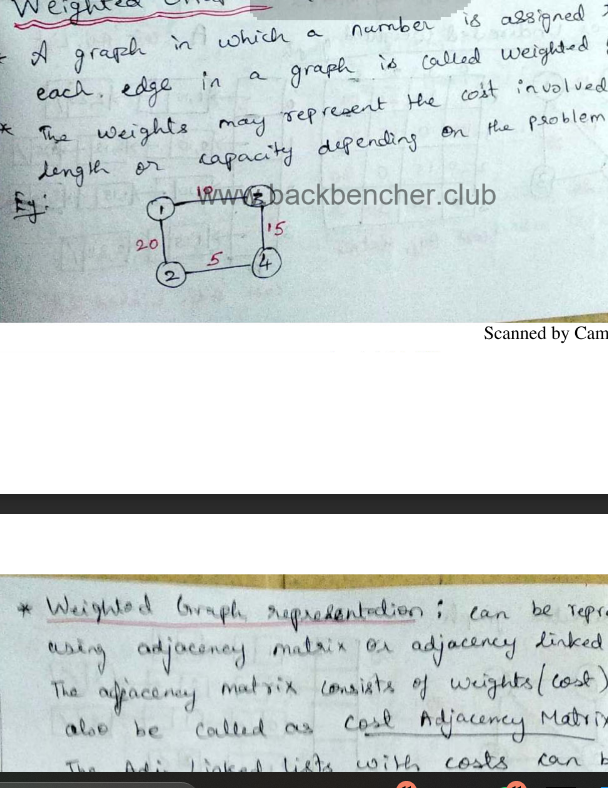 Weighted
* A graph in which a number is assigned
each edge in a graph is called weighted
* The weights may represent the cost involved
length or capacity depending on the problem
Eg:
1
www.backbencher.club
20
15
5
2
4
Scanned by Cam
* Weighted Graph representation : can be repre
using adjacency matrix or adjacency linked
The adjacency matrix consists of weights/(cost)
also be called as Cost Adjacency Matrix
The Adj Linked lists with costs can b